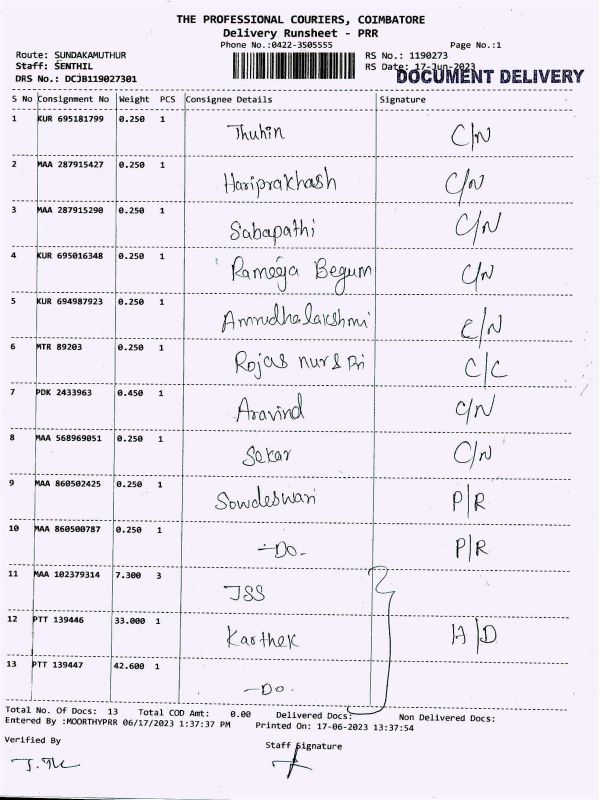 THE PROFESSIONAL COURIERS, COIMBATORE
Delivery Runsheet - PRR
Phone No.:0422-3505555 Page No.:1
Route: SUNDAKAMUTHUR RS No.: 1190273
Staff: SENTHIL RS Date: 17-Jun-2023
DOCUMENT DELIVERY
DRS No.: DCJB119027301
S No Consignment No Weight PCS Consignee Details Signature
1 KUR 695181799 0.250 1 Thuhin C/N
2 MAA 287915427 0.250 1 Hariprakhash C/N
3 MAA 287915290 0.250 1 Sabapathi C/N
4 KUR 695016348 0.250 1 Rameeja Begum C/N
5 KUR 694987923 0.250 1 Amrudhalakshmi C/N
6 MTR 89203 0.250 1 Rojas nur & Pri C/C
7 PDK 2433963 0.450 1 Aravind C/N
8 MAA 568969051 0.250 1 Sekar C/N
9 MAA 860502425 0.250 1 Sowdeswari P/R
10 MAA 860500787 0.250 1 -Do- P/R
11 MAA 102379314 7.300 3 JSS
12 PTT 139446 33.000 1 Karthek A/D
13 PTT 139447 42.600 1 -Do-
Total No. Of Docs: 13 Total COD Amt: 0.00 Delivered Docs: Non Delivered Docs:
Entered By :MOORTHYPRR 06/17/2023 1:37:37 PM Printed On: 17-06-2023 13:37:54
Verified By Staff Signature